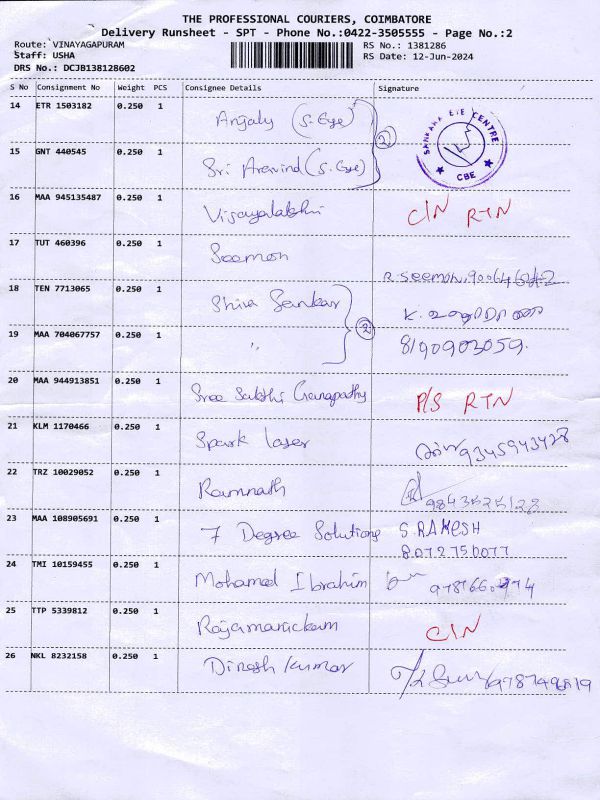 THE PROFESSIONAL COURIERS, COIMBATORE
Delivery Runsheet - SPT - Phone No.:0422-3505555 - Page No.:2
Route: VINAYAGAPURAM
Staff: USHA
DRS No.: DCJB138128602
RS No.: 1381286
RS Date: 12-Jun-2024
S No Consignment No Weight PCS Consignee Details Signature
14 ETR 1503182 0.250 1 Anjaly (S. Eye)
2
SANKARA EYE CENTRE
CBE
15 GNT 440545 0.250 1 Sri Aravind (S. Eye)
16 MAA 945135487 0.250 1 Vijayalakshi C/N RTN
17 TUT 460396 0.250 1 Seemon
R. Seemon,
18 TEN 7713065 0.250 1 Shiva Sankar K.
2
19 MAA 704067757 0.250 1 " 8190903059.
20 MAA 944913851 0.250 1 Sree Sakthi Ganapathy P/S RTN
21 KLM 1170466 0.250 1 Spark laser 9345943428
22 TRZ 10029052 0.250 1 Ramnath
23 MAA 108905691 0.250 1 7 Degree Solutions S. RAKESH
8072750077
24 TMI 10159455 0.250 1 Mohamed Ibrahim
25 TTP 5339812 0.250 1 Rajamanickam C/N
26 NKL 8232158 0.250 1 Dinesh Kumar